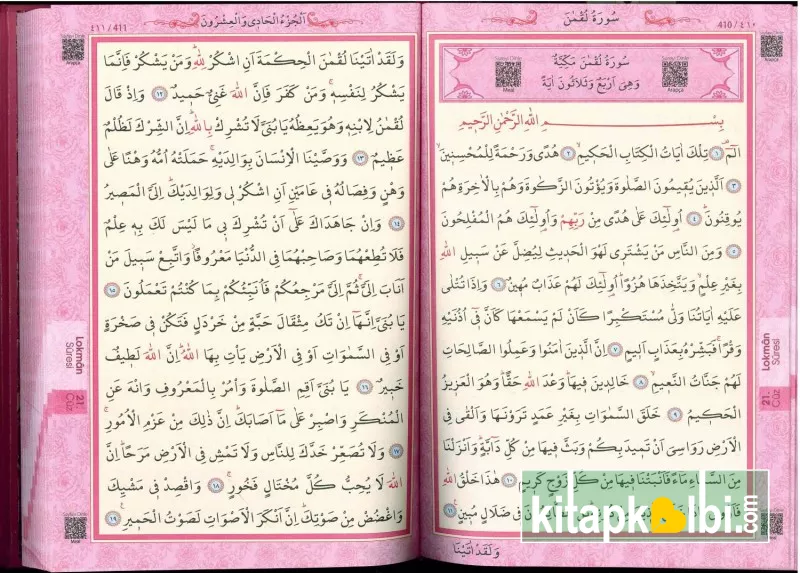 سُورَةُ لُقْمٰنَ
٤١٠ / 410
سُورَةُ لُقْمٰنَ مَكِّيَّةٌ
وَهِىَ اَرْبَعٌ وَثَلَاثُونَ اٰيَةً
بِسْــــمِ اللّٰهِ الرَّحْمٰنِ الرَّحِيمِ
الٓمٓ ﴿١﴾ تِلْكَ اٰيَاتُ الْكِتَابِ الْحَكِيمِ ﴿٢﴾ هُدًى وَرَحْمَةً لِلْمُحْسِنِينَ
﴿٣﴾ اَلَّذِينَ يُقِيمُونَ الصَّلٰوةَ وَيُؤْتُونَ الزَّكٰوةَ وَهُمْ بِالْاٰخِرَةِ هُمْ
يُوقِنُونَ ﴿٤﴾ اُولٰٓئِكَ عَلٰى هُدًى مِنْ رَبِّهِمْ وَاُولٰٓئِكَ هُمُ الْمُفْلِحُونَ
﴿٥﴾ وَمِنَ النَّاسِ مَنْ يَشْتَرِى لَهْوَ الْحَدِيثِ لِيُضِلَّ عَنْ سَبِيلِ اللّٰهِ
بِغَيْرِ عِلْمٍ وَيَتَّخِذَهَا هُزُوًا اُولٰٓئِكَ لَهُمْ عَذَابٌ مُهِينٌ ﴿٦﴾ وَاِذَا تُتْلٰى
عَلَيْهِ اٰيَاتُنَا وَلّٰى مُسْتَكْبِرًا كَاَنْ لَمْ يَسْمَعْهَا كَاَنَّ فِىٓ اُذُنَيْهِ
وَقْرًا فَبَشِّرْهُ بِعَذَابٍ اَلِيمٍ ﴿٧﴾ اِنَّ الَّذِينَ اٰمَنُوا وَعَمِلُوا الصَّالِحَاتِ
لَهُمْ جَنَّاتُ النَّعِيمِ ﴿٨﴾ خَالِدِينَ فِيهَا وَعْدَ اللّٰهِ حَقًّا وَهُوَ الْعَزِيزُ
الْحَكِيمُ ﴿٩﴾ خَلَقَ السَّمٰوَاتِ بِغَيْرِ عَمَدٍ تَرَوْنَهَا وَاَلْقٰى فِى
الْاَرْضِ رَوَاسِىَ اَنْ تَمِيدَ بِكُمْ وَبَثَّ فِيهَا مِنْ كُلِّ دَآبَّةٍ وَاَنْزَلْنَا
مِنَ السَّمَآءِ مَآءً فَاَنْبَتْنَا فِيهَا مِنْ كُلِّ زَوْجٍ كَرِيمٍ ﴿١٠﴾ هٰذَا خَلْقُ اللّٰهِ
فِى ضَلَالٍ مُبِينٍ ﴿١١﴾
وَلَقَدْ اٰتَيْنَا
Lokmân
Sûresi
21.
Cüz
اَلْجُزْءُ الْحَادِى وَالْعِشْرُونَ
٤١١ / 411
وَلَقَدْ اٰتَيْنَا لُقْمٰنَ الْحِكْمَةَ اَنِ اشْكُرْ لِلّٰهِ وَمَنْ يَشْكُرْ فَاِنَّمَا
يَشْكُرُ لِنَفْسِهِ وَمَنْ كَفَرَ فَاِنَّ اللّٰهَ غَنِىٌّ حَمِيدٌ ﴿١٢﴾ وَاِذْ قَالَ
لُقْمٰنُ لِابْنِهِ وَهُوَ يَعِظُهُ يَا بُنَىَّ لَا تُشْرِكْ بِاللّٰهِ اِنَّ الشِّرْكَ لَظُلْمٌ
عَظِيمٌ ﴿١٣﴾ وَوَصَّيْنَا الْاِنْسَانَ بِوَالِدَيْهِ حَمَلَتْهُ اُمُّهُ وَهْنًا عَلٰى
وَهْنٍ وَفِصَالُهُ فِى عَامَيْنِ اَنِ اشْكُرْ لِى وَلِوَالِدَيْكَ اِلَىَّ الْمَصِيرُ
﴿١٤﴾ وَاِنْ جَاهَدَاكَ عَلٰٓى اَنْ تُشْرِكَ بِى مَا لَيْسَ لَكَ بِهِ عِلْمٌ
فَلَا تُطِعْهُمَا وَصَاحِبْهُمَا فِى الدُّنْيَا مَعْرُوفًا وَاتَّبِعْ سَبِيلَ مَنْ
اَنَابَ اِلَىَّ ثُمَّ اِلَىَّ مَرْجِعُكُمْ فَاُنَبِّئُكُمْ بِمَا كُنْتُمْ تَعْمَلُونَ ﴿١٥﴾
يَا بُنَىَّ اِنَّهَآ اِنْ تَكُ مِثْقَالَ حَبَّةٍ مِنْ خَرْدَلٍ فَتَكُنْ فِى صَخْرَةٍ
اَوْ فِى السَّمٰوَاتِ اَوْ فِى الْاَرْضِ يَأْتِ بِهَا اللّٰهُ اِنَّ اللّٰهَ لَطِيفٌ
خَبِيرٌ ﴿١٦﴾ يَا بُنَىَّ اَقِمِ الصَّلٰوةَ وَأْمُرْ بِالْمَعْرُوفِ وَانْهَ عَنِ
الْمُنْكَرِ وَاصْبِرْ عَلٰى مَآ اَصَابَكَ اِنَّ ذٰلِكَ مِنْ عَزْمِ الْاُمُورِ
﴿١٧﴾ وَلَا تُصَعِّرْ خَدَّكَ لِلنَّاسِ وَلَا تَمْشِ فِى الْاَرْضِ مَرَحًا اِنَّ
اللّٰهَ لَا يُحِبُّ كُلَّ مُخْتَالٍ فَخُورٍ ﴿١٨﴾ وَاقْصِدْ فِى مَشْيِكَ
وَاغْضُضْ مِنْ صَوْتِكَ اِنَّ اَنْكَرَ الْاَصْوَاتِ لَصَوْتُ الْحَمِيرِ ﴿١٩﴾
Lokmân
Sûresi
21.
Cüz
kitapkalbi.com